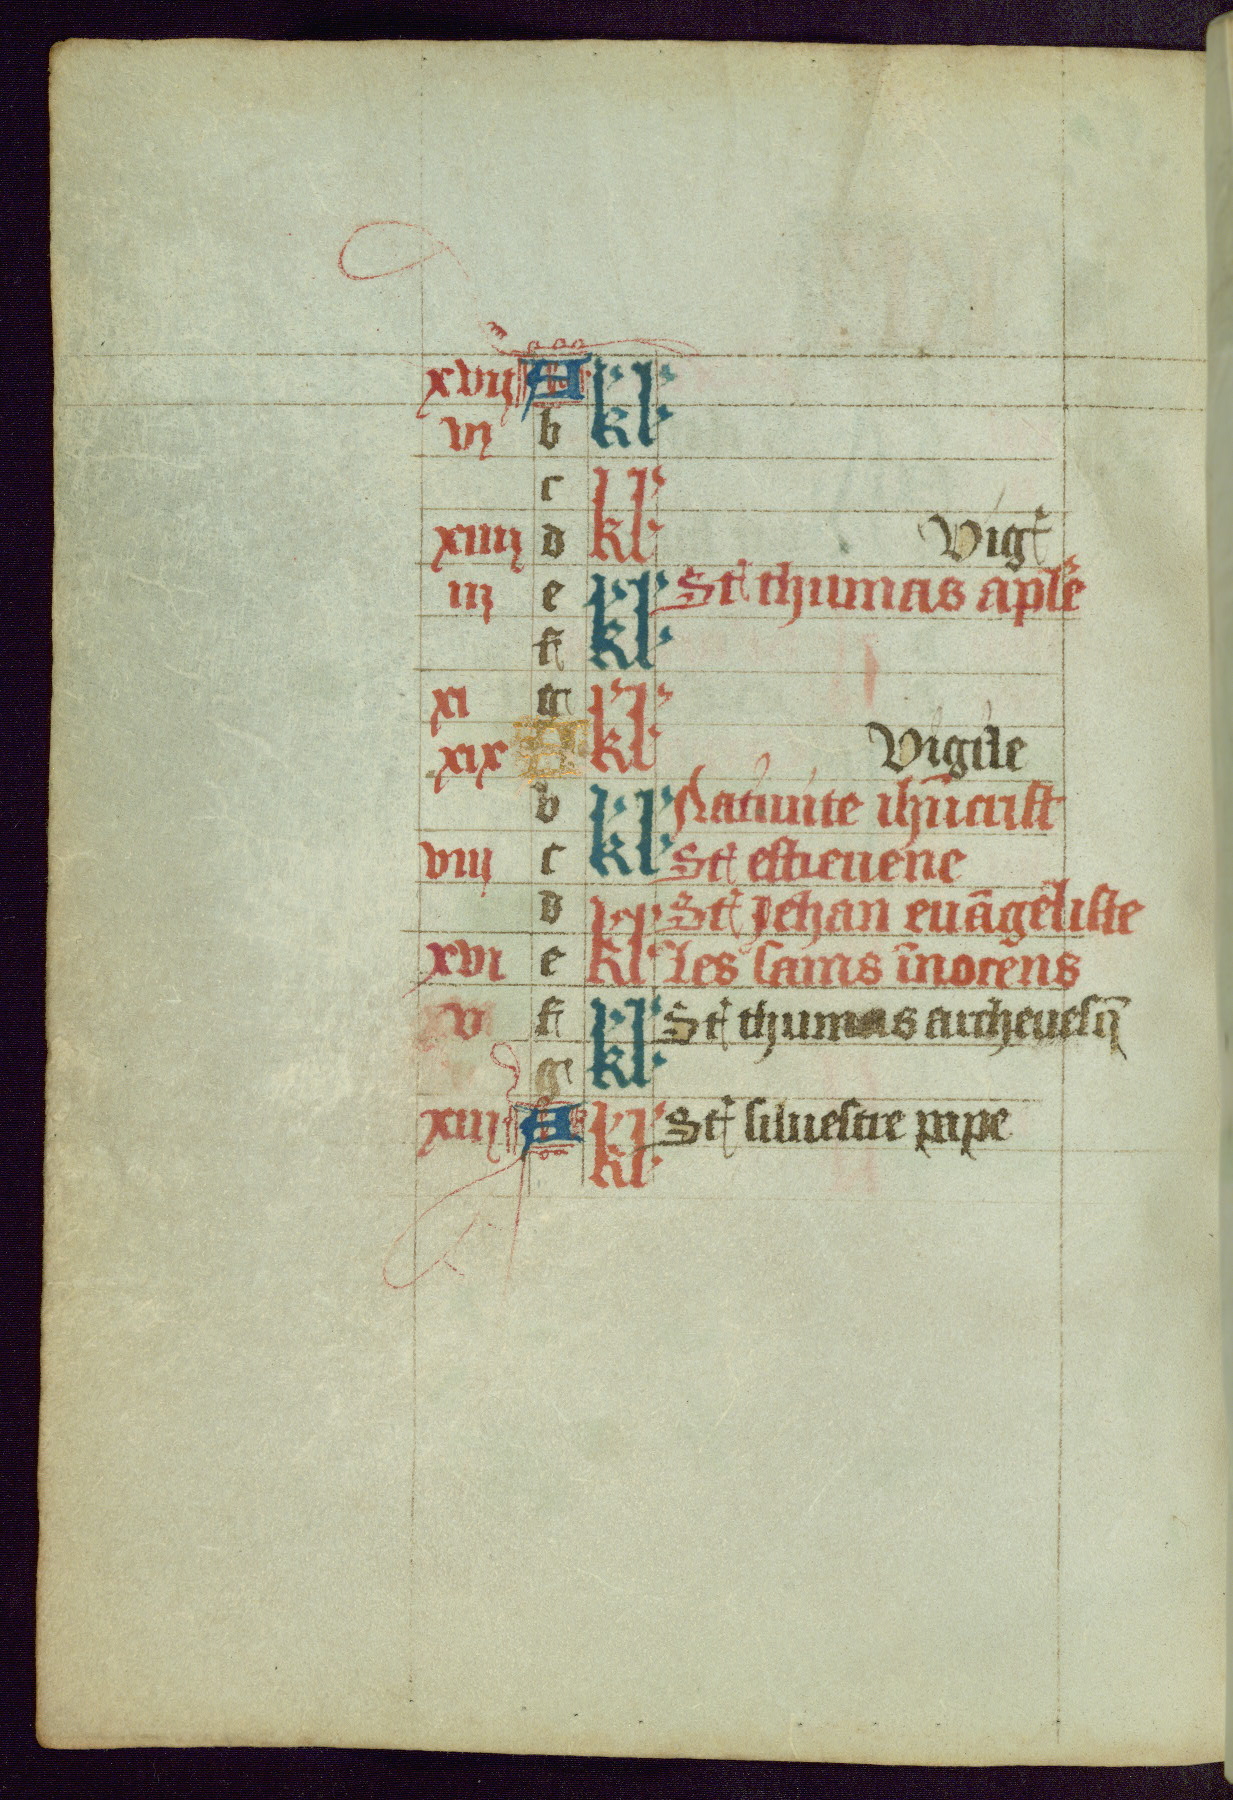 xvii A kl
vi b kl
c kl
xiiii d kl Vigᵉ
iii e kl Sᵗ thumas aplē
f kl
xi g kl
xix A kl Vigile
b kl Natiuite ihūcrist
viii c kl Sᵗ estieuene
d kl Sᵗ Jehan euāgeliste
xvi e kl Les sains īnocēns
v f kl Sᵗ thumas archeuesq̄
g kl
xiii A kl Sᵗ siluestre pape
kl